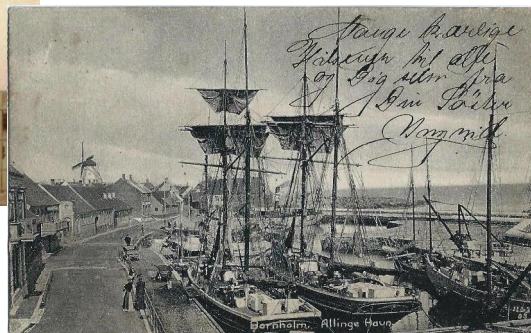 Mange kærlige
Hilsener til alle
og Dig selv fra
Din Søster
Bornholm. Allinge Havn